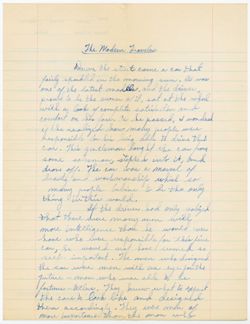 The Modern Traveler
Down the street came a car that
fairly sparkled in the morning sun. It was
one of the latest models, and the driver,
proud to be the owner of it, sat at the wheel
with a look of complete satisfaction and
comfort on his face. As he passed, I wondered
if he realized how many people were
responsible for his being able to drive that
car. This gentleman bought the car from
some salesman, stepped into it, and
drove off. The car was a marvel of
beauty and workmanship which so
many people believe to be the only
thing in this world.
If the driver had only realized
that there were many men with
more intelligence than he would ever
have who were responsible for this fine
car, he would not have seemed so
self important. The men who designed
the car were men with an eye for the
future - men who were able to be
fortune-tellers. They knew what to expect
the cars to look like and designed
them accordingly. They were not at
more importance than the men who